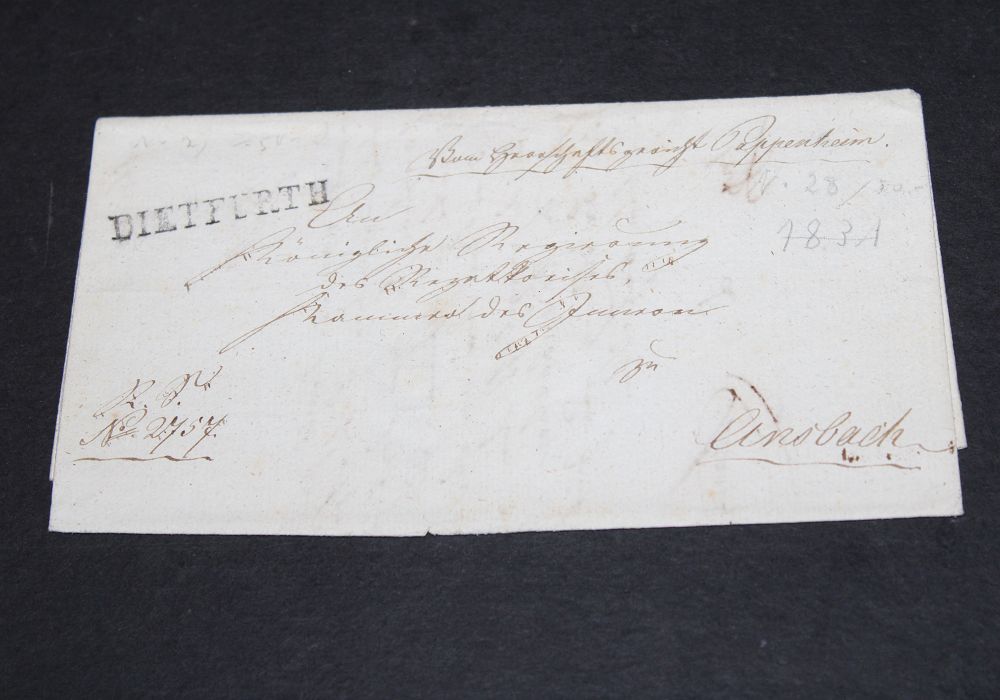 Vom Herrschaftsgericht Pappenheim.
DIETFURTH
W. 28 /50,-
1834
An
Königliche Regierung
des Rezatkreises,
Kammer des Innern
zu
Ansbach
R. S.
No. 2757.